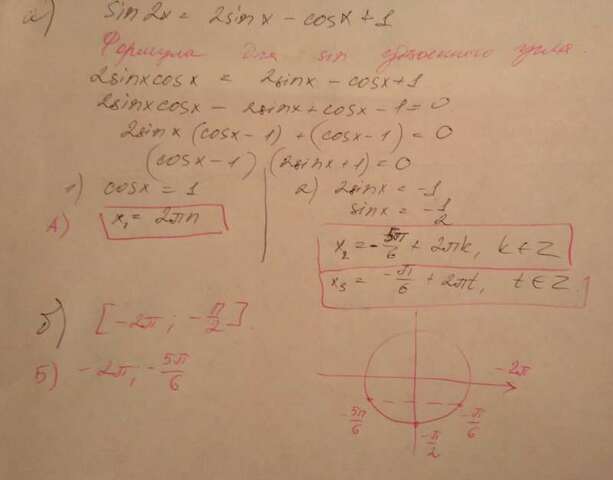 а) sin2x = 2sinx - cosx + 1
Формула для sin двойного угла.
2sinxcosx = 2sinx - cosx + 1
2sinxcosx - 2sinx + cosx - 1 = 0
2sinx (cosx - 1) + (cosx - 1) = 0
(cosx - 1) (2sinx + 1) = 0
1) cosx = 1
А) x₁ = 2πn
2) 2sinx = -1
sinx = -1/2
x₂ = -5π/6 + 2πk, k ∈ Z
x₃ = -π/6 + 2πt, t ∈ Z
б) [-2π; -π/2].
Б) -2π; -5π/6
-2π
-5π/6
-π/6
-π/2